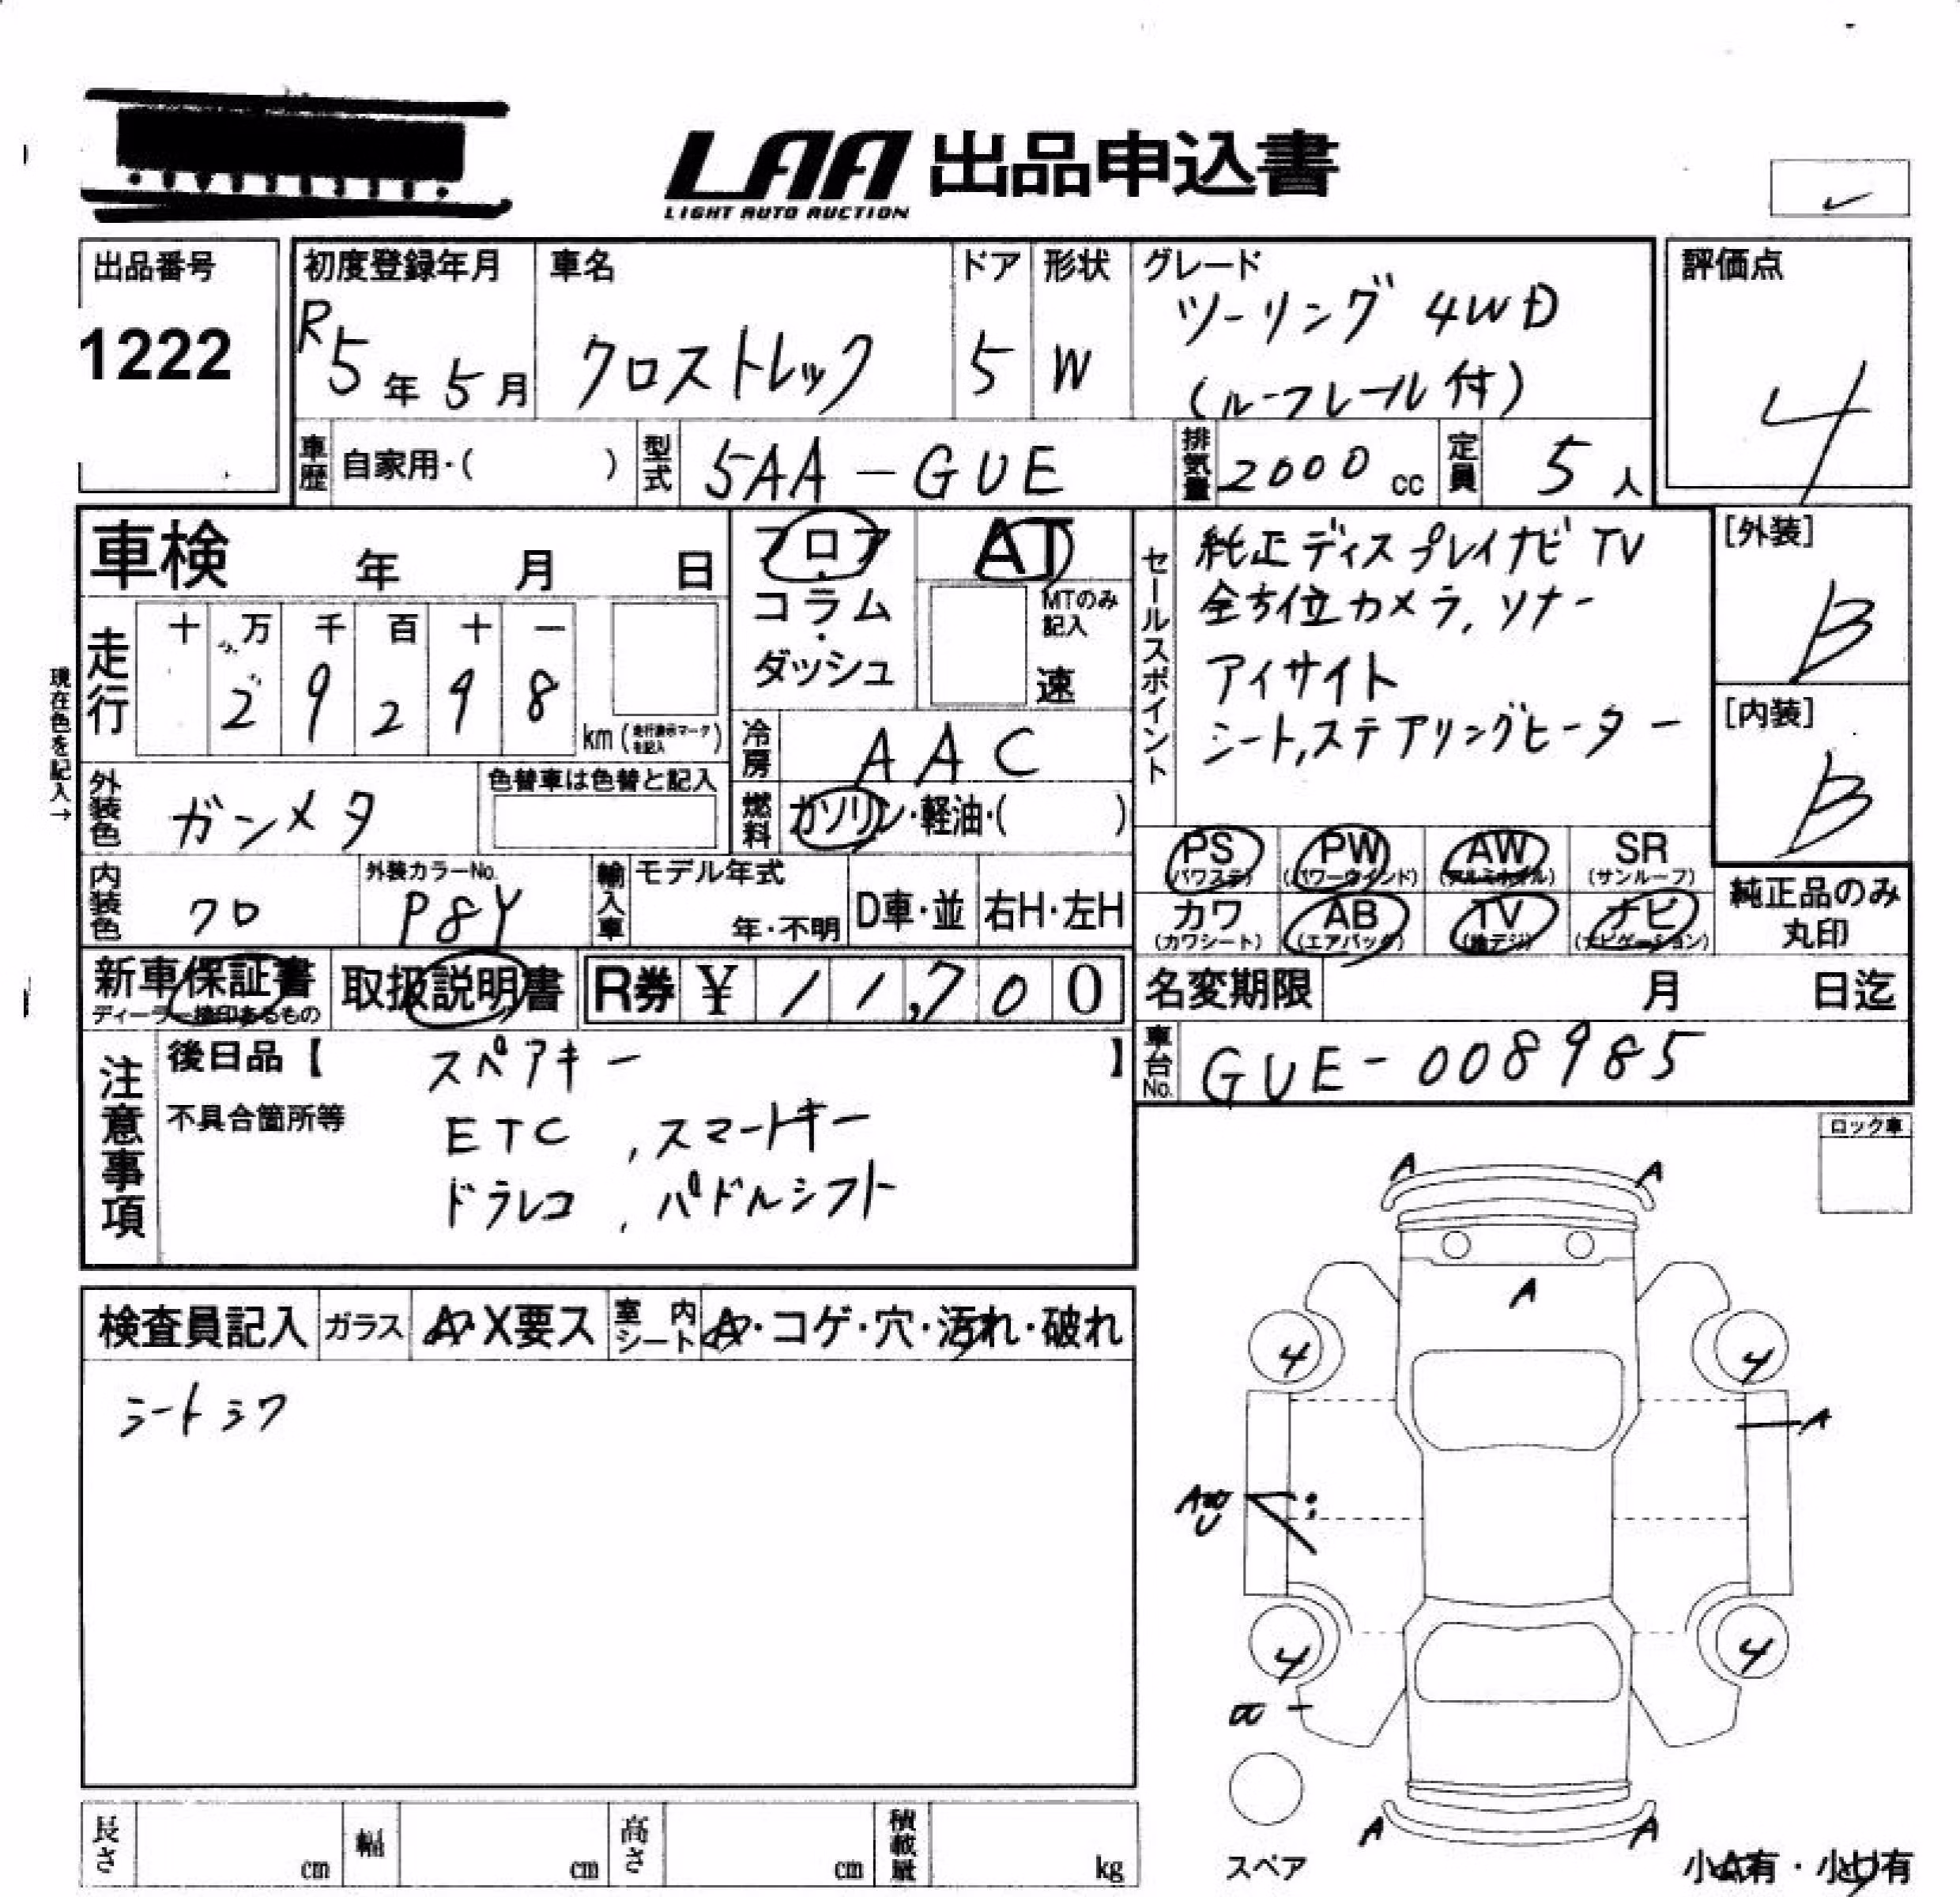 LAA 出品申込書
LIGHT AUTO AUCTION
出品番号
1222
初度登録年月
R5年5月
車名
クロストレック
ドア
5
形状
W
グレード
ツーリング 4WD
(ルーフレール付)
評価点
4
車歴
自家用・( )
型式
5AA-GUE
排気量
2000 cc
定員
5人
車検 年 月 日
フロア
・
コラム
・
ダッシュ
AT
MTのみ
記入
速
セールスポイント
純正ディスプレイナビ TV
全方位カメラ, ソナー
アイサイト
シート,ステアリングヒーター
[外装]
B
[内装]
B
現在色を記入→
走行
十 万 千 百 十 一
2 9 2 9 8
km (走行表示マークを記入)
冷房
AAC
外装色
ガンメタ
色替車は色替と記入
燃料
ガソリン・軽油・( )
PS
(パワステ)
PW
(パワーウインド)
AW
(アルミホイル)
SR
(サンルーフ)
カワ
(カワシート)
AB
(エアバック)
TV
(地デジ)
ナビ
(ナビゲーション)
純正品のみ
丸印
内装色
クロ
外装カラーNo.
P8Y
輸入車
モデル年式
年・不明
D車・並
右H・左H
新車保証書
ディーラー捺印あるもの
取扱説明書
R券 ¥ 11,700
名変期限 月 日迄
車台No.
GUE-008985
注意事項
後日品【 スペアキー 】
不具合箇所等
ETC , スマートキー
ドラレコ , パドルシフト
ロック車
検査員記入
ガラス
A・X要ス
室内シート
A・コゲ・穴・汚れ・破れ
シートシワ
A
A
A
4
4
A
4
4
A
A
スペア
小A有・小U有
長さ cm
幅 cm
高さ cm
積載量 kg